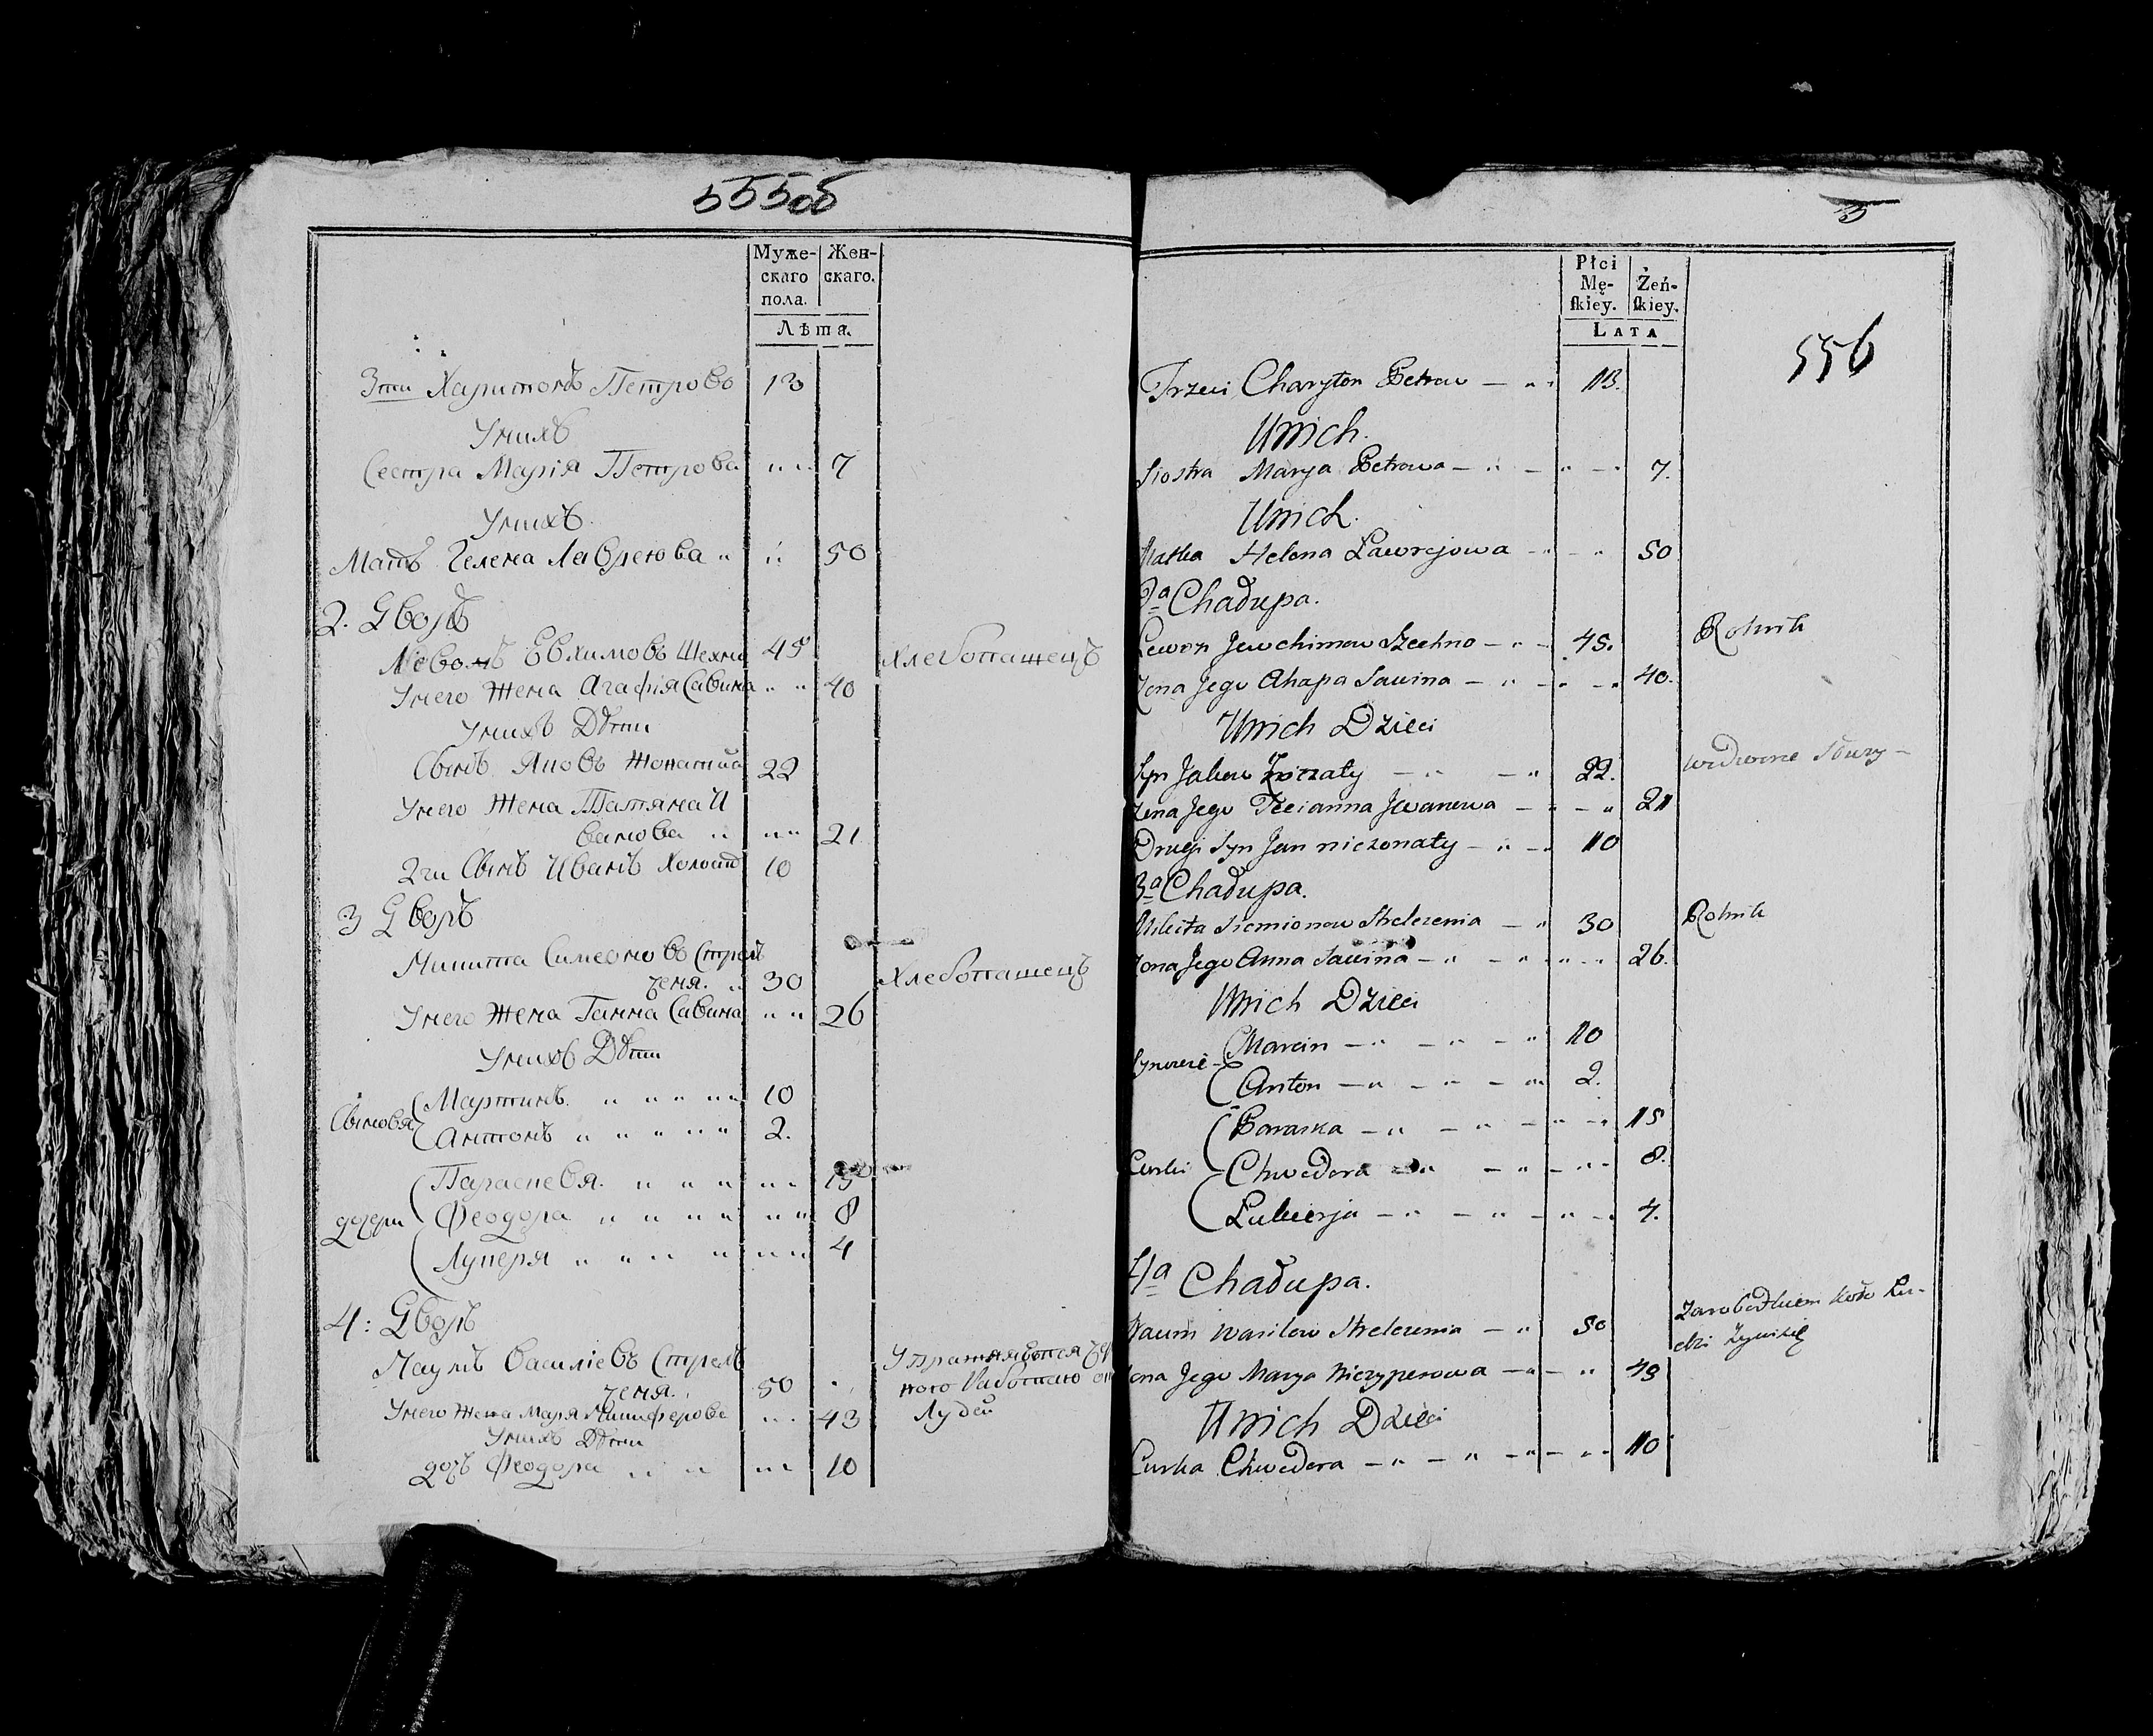 555об
Муже-
скаго
пола.
Жен-
скаго.
Лѣта.
3тій Харитонъ Петровъ 13
Унихъ
Сестра Марія Петрова 7
Унихъ
Мать Гелена Лаврегова 50
2. Дворъ
Левонъ Евхимовъ Шехно 45 Хлебопашецъ
Унего Жена Агафія Савина 40
Унихъ Дѣти
Сынъ Яковъ Жонатый 22
Унего Жена Татяна И
ванова 21
2гй Сынъ Иванъ Холостъ 10
3 Дворъ
Микита Симеоновъ Стрель
ченя. 30 Хлебопашецъ
Унего Жена Ганна Савина 26
Унихъ Дѣти
Сыновя
Мартинъ 10
Антонъ 2.
дочери
Параскевя 15
Феодора 8
Лукеря 4
4: Дворъ
Наумъ Василіевъ Стрель
ченя. 50
Унего Жена Маря Никиферова 43
Людей
Унихъ Дѣти
дочь Феодора 10
5
556
Płci
Mę-
ſkiey.
Żeń-
ſkiey.
LATA
Trzeci Charyton Petrow 13.
Unich.
Siostra Marya Petrowa 7.
Unich.
Matka Helena Ławrejowa 50
2a Chałupa.
Lewon Jewchimow Szechno 45. Rolnik
Żona Jego Ahapa Sawina 40.
Unich Dzieci
Syn Jakow Żonaty 22. wedworne służy
Żona Jego Tecianna Jwanowa 21
Drugi Syn Jan nieżonaty 10
3a Chałupa.
Mikita Siemionow Strelczenia 30 Rolnik
Żona Jego Anna Sawina 26.
Unich Dzieci
Synowie
Marcin 10
Anton 2.
Curki
Paraska 15
Chwedora 8.
Łukierja 4.
4a Chałupa.
Naum Wasilow Strelczenia 50 Zarobodkiem koło Lu-
dzi żywi się
Żona Jego Marya Niczyperowa 43
Unich Dzieci
Curka Chwedora 10